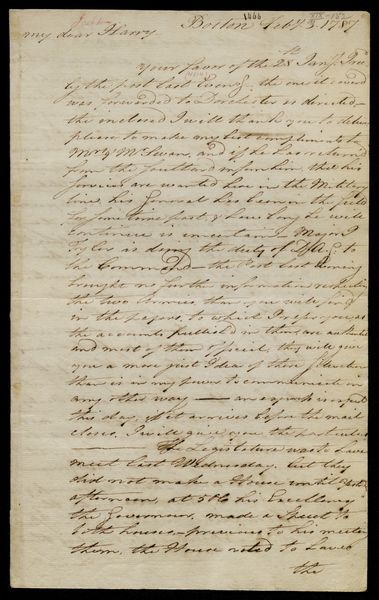 1666
Boston Feby 5. 1787
my dear Harry
Your favor of the 28 Jany I recd
by the post last Eveng, the one it coverd
was forwarded to Dorchester as directed,
the inclosed I will thank you to deliver
please to make my best compliments to
Mr & Mrs Swan, and if he has returnd
from the Southward inform him, that his
services are wanted here in the Military
line, his General has been in the field
for some time past, & how long he will
continue is uncertain — Major
is doing the duty of
to the Command — the Post last Evening
brought no further information respecting
the two Armies than you will find
in the papers, to which I refer you as
the accounts publishd in them are authentic
and most of them official, they will give
you a more just Idea of their situation
than is in my power to communicate in
any other way — an express is expected
this day, if it arrives before the mail
closes, I will give you the particulars
The Legislature was to have
meet last Wednesday, but they
did not make a House until
afternoon, at 5 his Excellency
the Governour, made a Speech to
both houses — previous to his meeting
them, the House voted to have
the